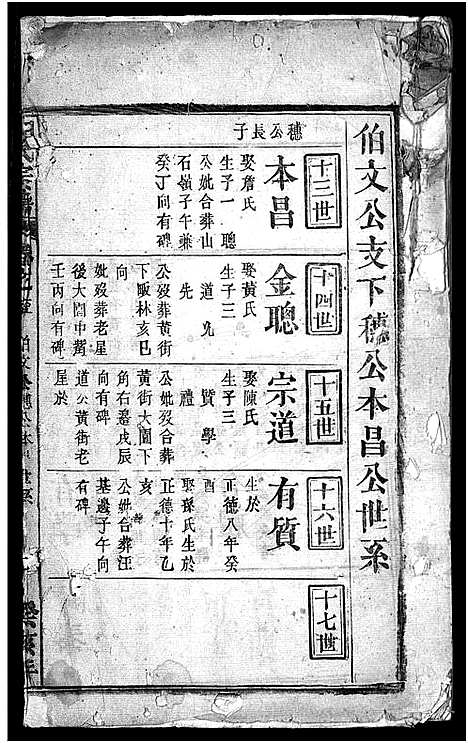 伯文公支下穗公本昌公世系
十三世
穗公長子
本昌
娶詹氏
生子一聰
公妣合葬山
石嶺子午兼
癸丁向有碑
十四世
金聰
娶黃氏
生子三
道
先
公葬黃街
下畈林亥巳
向
妣歿葬老星
後大園中嵩
壬丙向有碑
十五世
宗道
娶陳氏
生子三
質學
禮
公妣歿合葬
黃街大園下
角右邊戌辰
向有碑
道公黃街老
屋於
十六世
有質
生於
正德八年癸
酉
娶孫氏生於
正德十年乙
亥
公妣合葬汪
基邊子午向
有碑
十七世